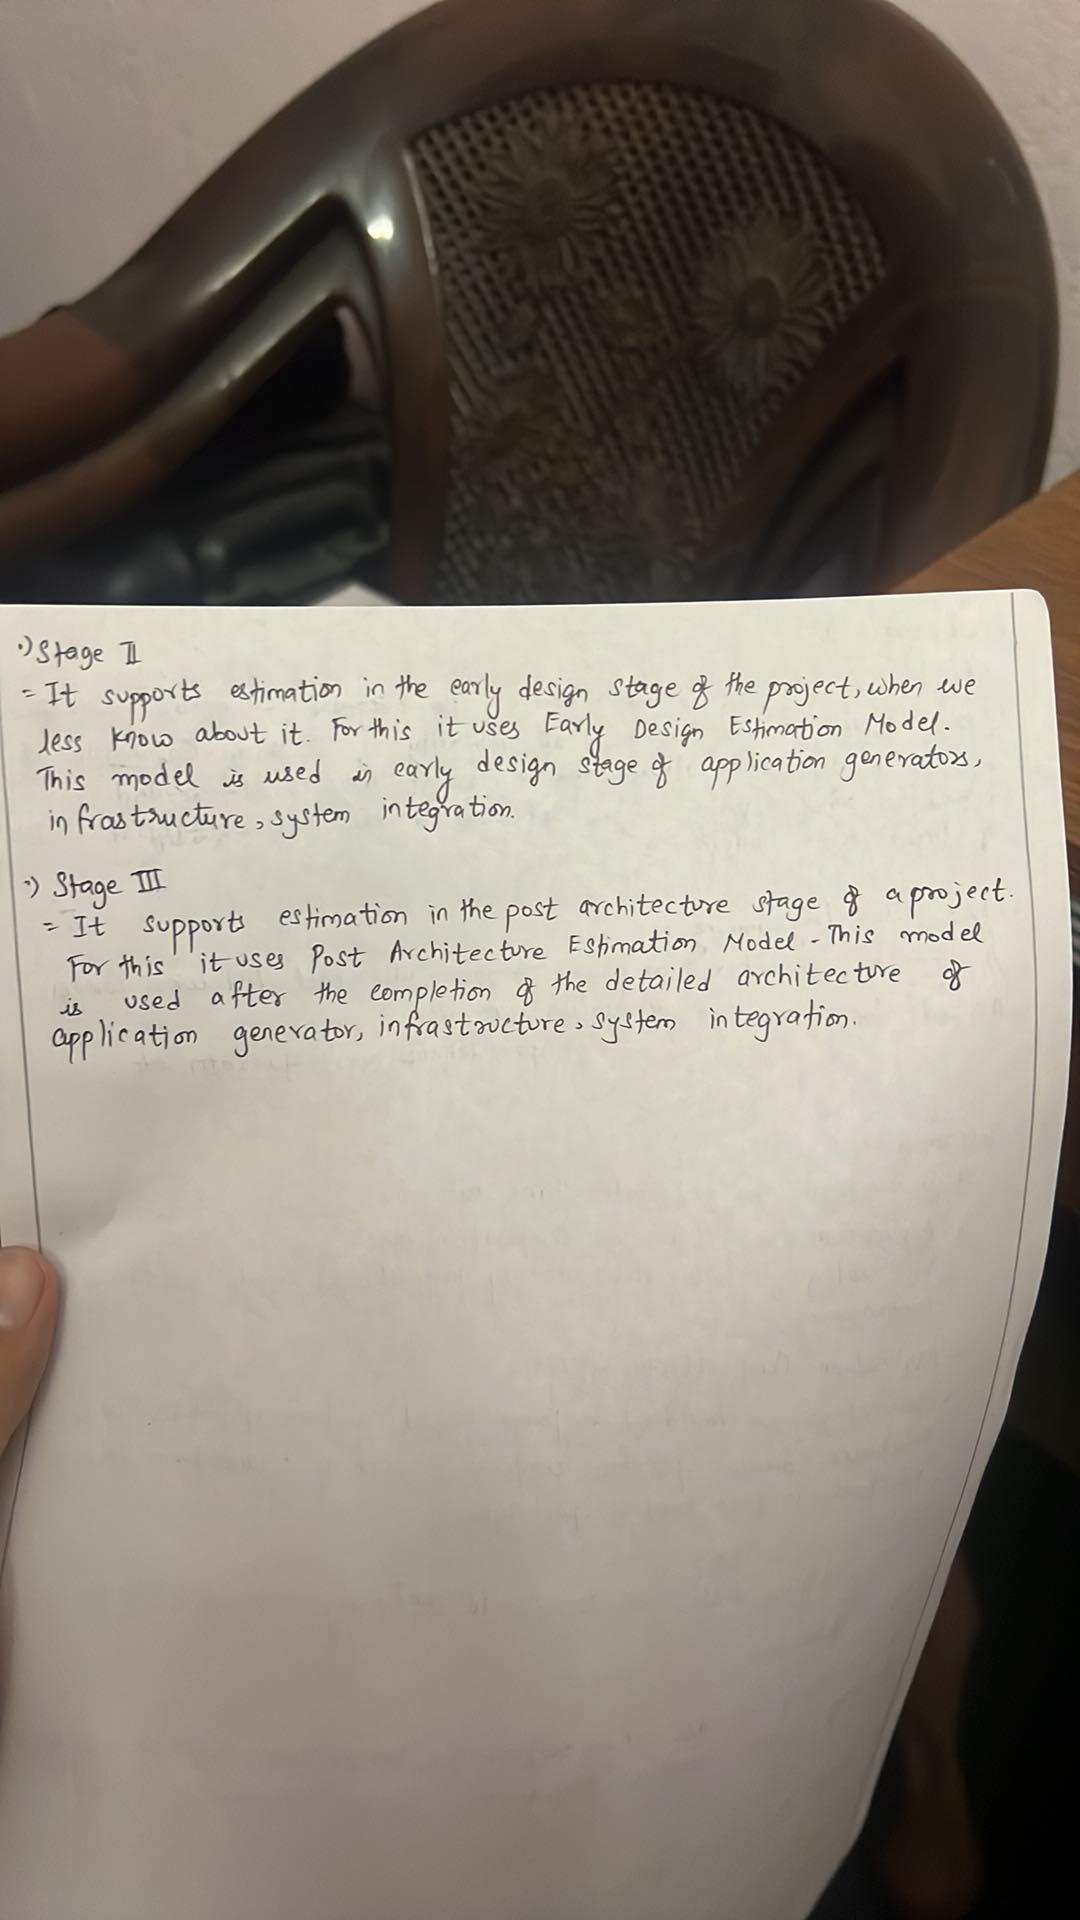 •) Stage II
= It supports estimation in the early design stage of the project, when we
less know about it. For this it uses Early Design Estimation Model.
This model is used in early design stage of application generators,
infrastructure, system integration.
•) Stage III
= It supports estimation in the post architecture stage of a project.
For this it uses Post Architecture Estimation Model. This model
is used after the completion of the detailed architecture of
application generator, infrastructure, system integration.